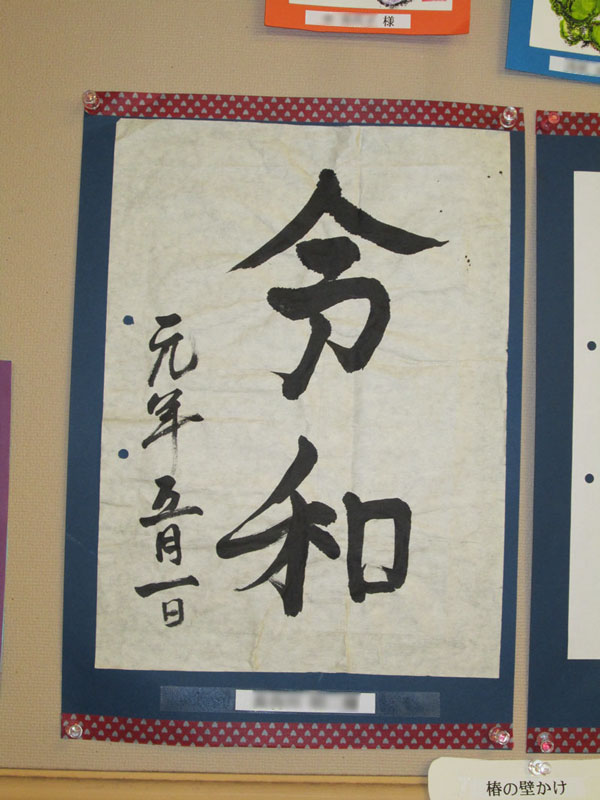 様
令和
元年五月一日
椿の壁かけ